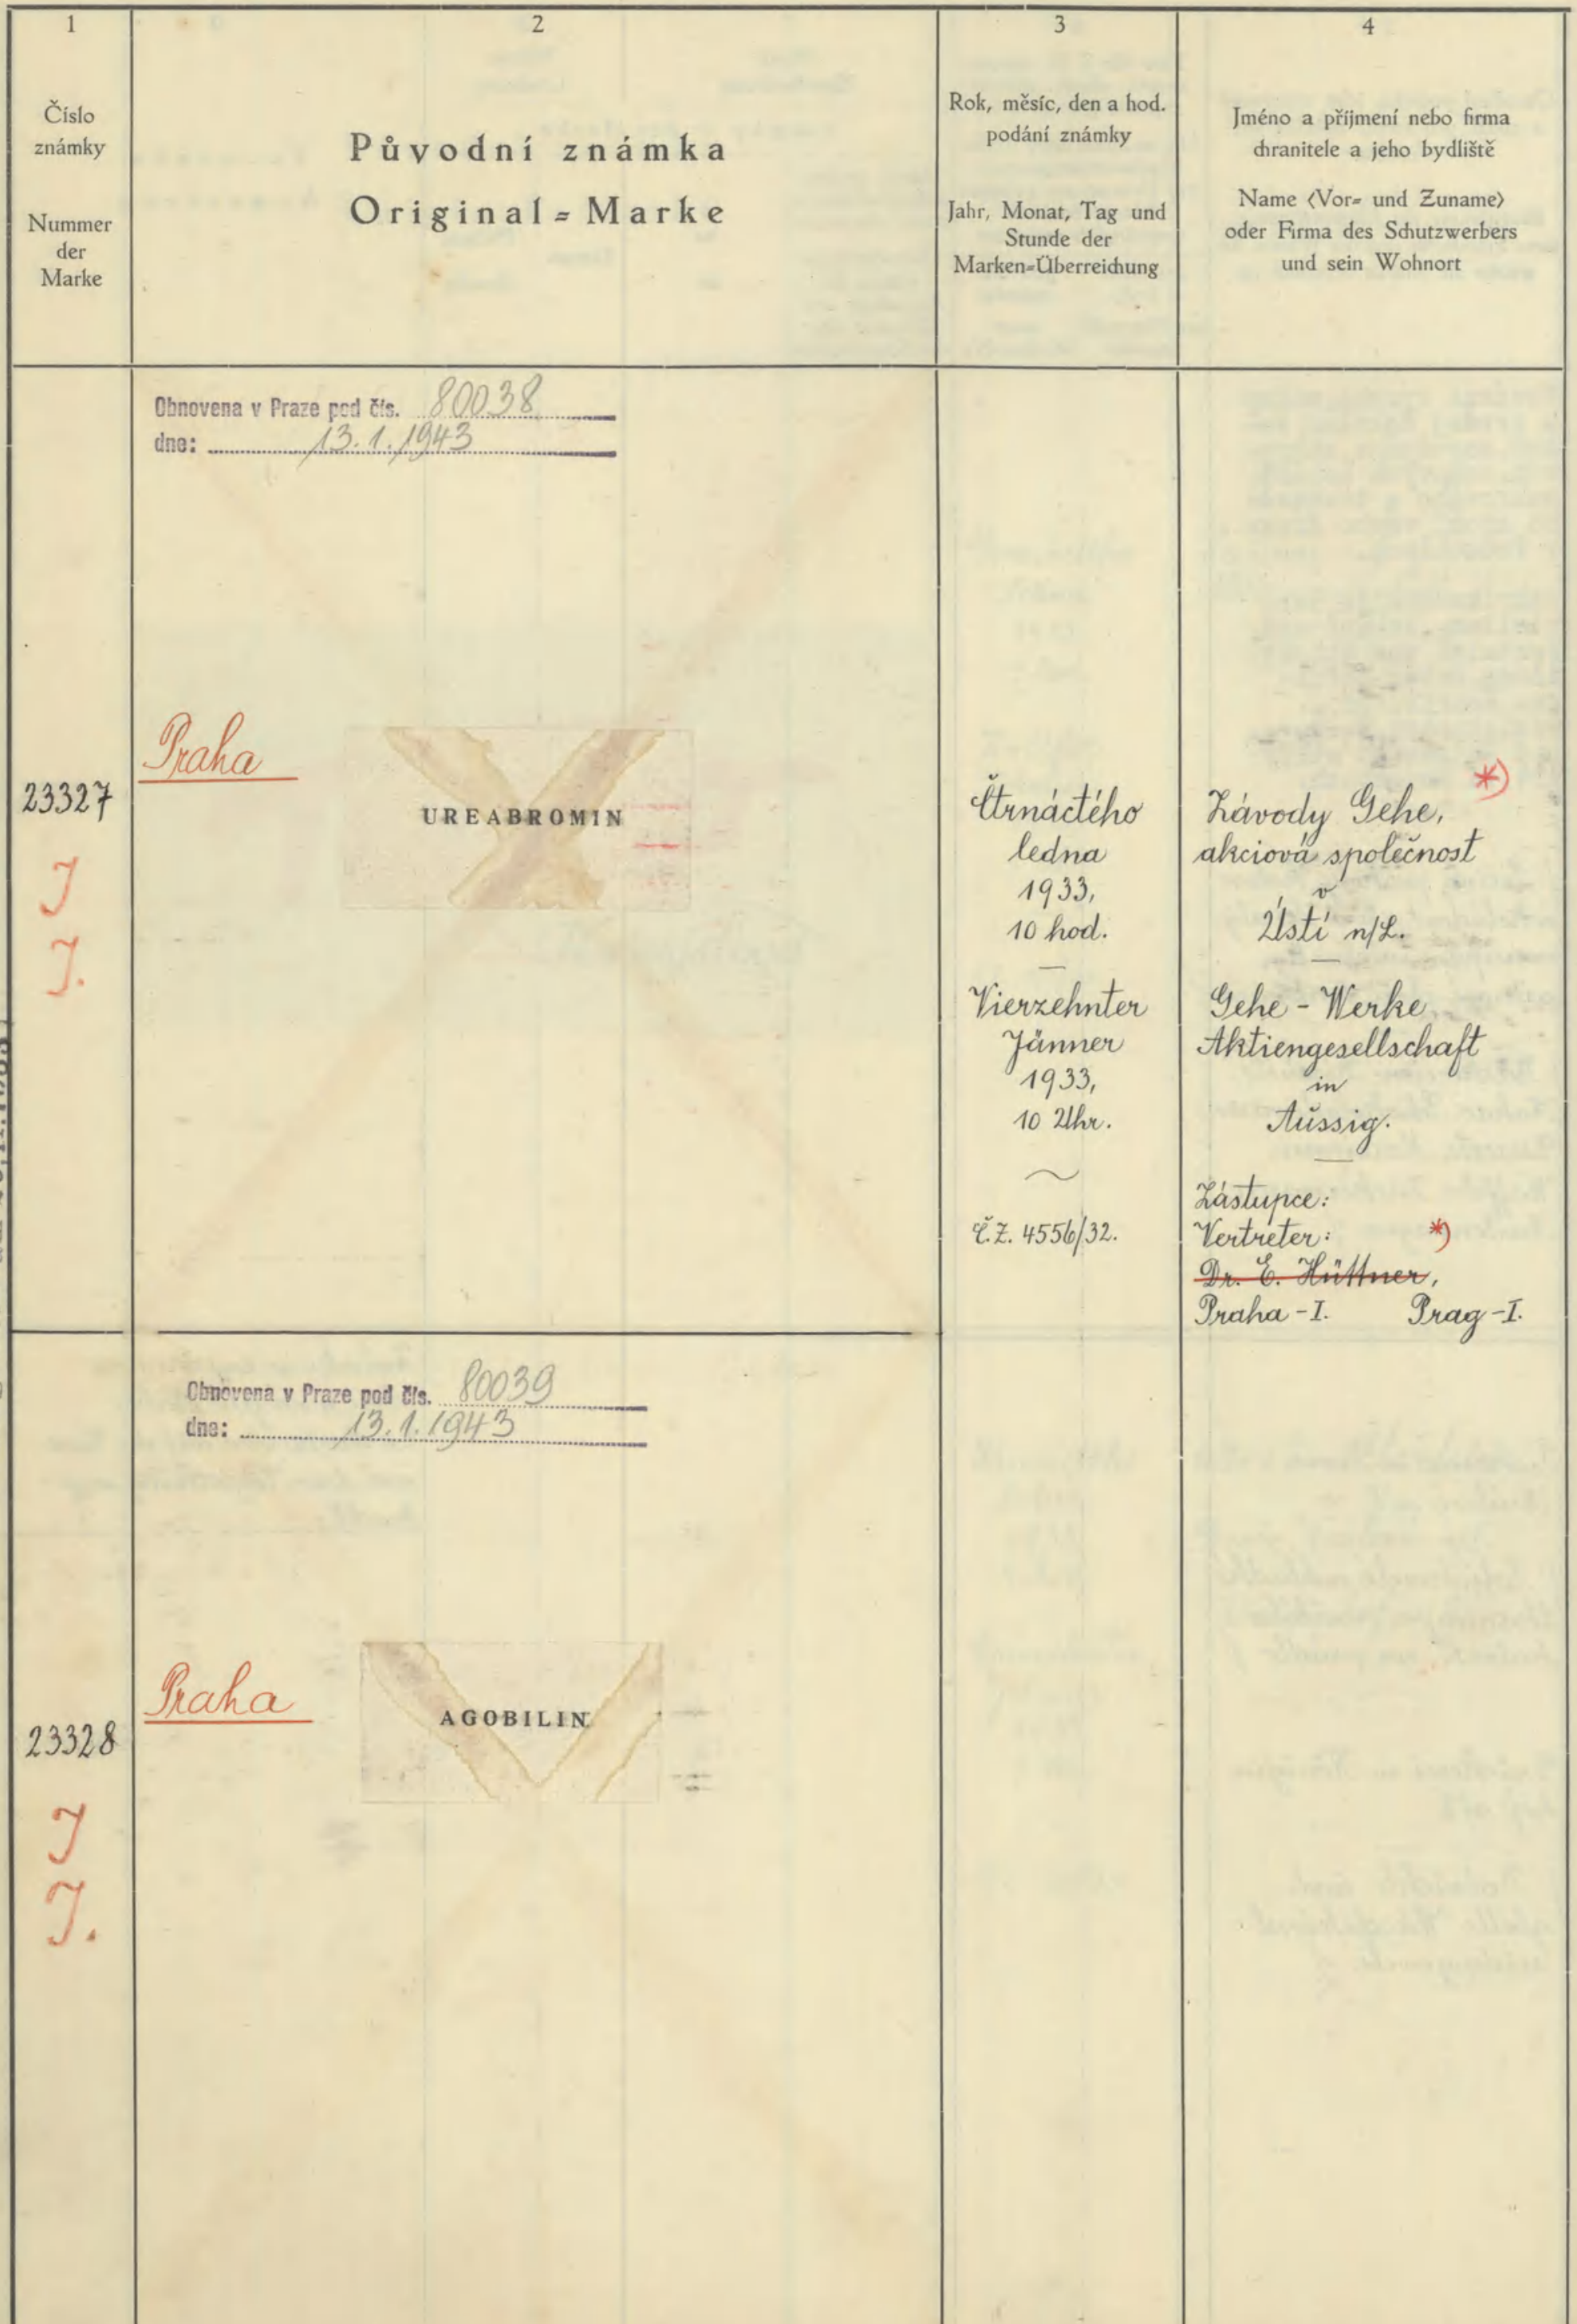 1
Číslo
známky
Nummer
der
Marke
2
Původní známka
Original-Marke
3
Rok, měsíc, den a hod.
podání známky
Jahr, Monat, Tag und
Stunde der
Marken-Überreichung
4
Jméno a příjmení nebo firma
chranitele a jeho bydliště
Name (Vor- und Zuname)
oder Firma des Schutzwerbers
und sein Wohnort
Obnovena v Praze pod čís. 80038
dne: 13.1.1943
23327
J
J.
Praha
UREABROMIN
Čtrnáctého
ledna
1933,
10 hod.
Vierzehnter
Jänner
1933,
10 Uhr.
Č.Z. 4556/32.
*)
Závody Gehe,
akciová společnost
v
Ústí n/L.
Gehe - Werke
Aktiengesellschaft
in
Aussig.
Zástupce:
Vertreter: *)
Dr. E. Hüttner,
Praha - I. Prag - I.
Obnovena v Praze pod čís. 80039
dne: 13.1.1943
23328
J
J.
Praha
AGOBILIN